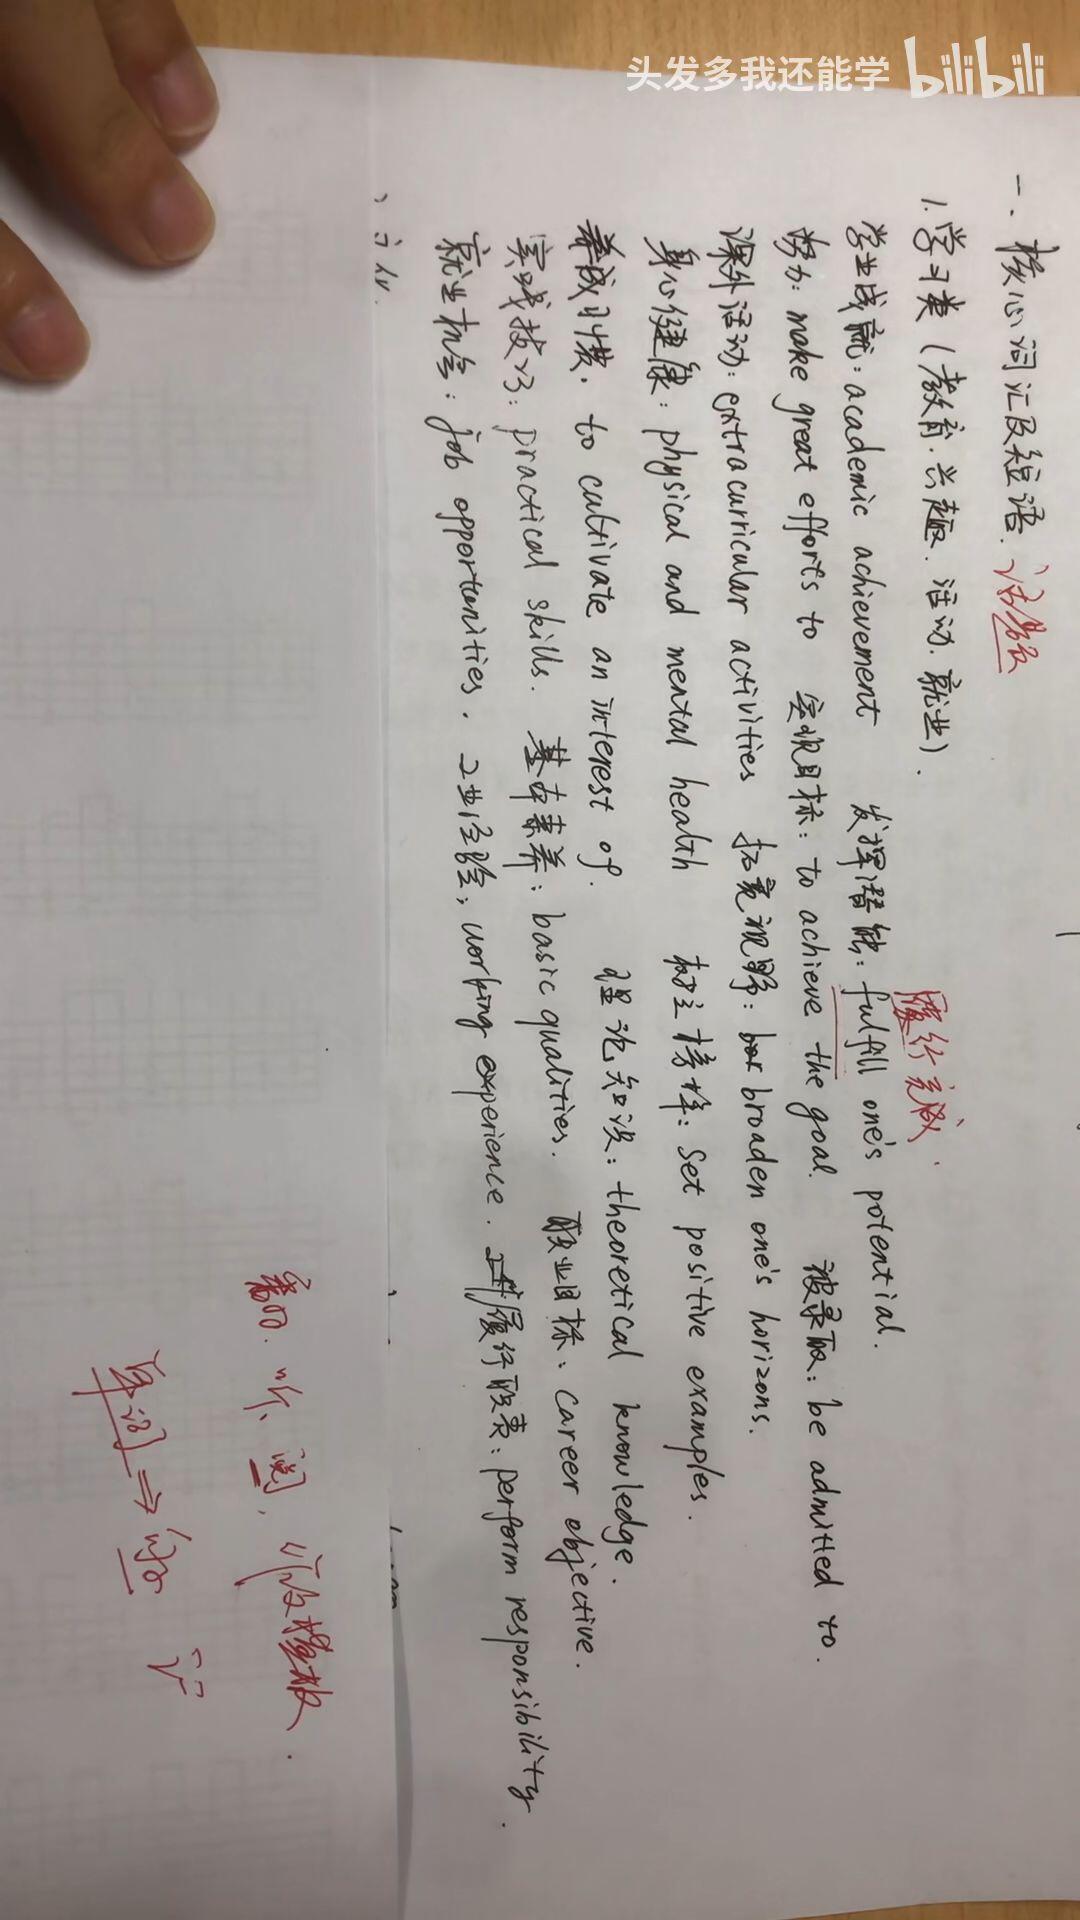 头发多我还能学 bilibili
一. 核心词汇及短语.
1. 学习类 (教育. 兴趣. 活动. 就业).
履行 完成.
学业成就: academic achievement 发挥潜能: fulfill one's potential.
努力: make great efforts to 实现目标: to achieve the goal. 被录取: be admitted to.
课外活动: extracurricular activities 拓宽视野: broaden one's horizons.
身心健康: physical and mental health 树立榜样: Set positive examples.
养成习惯. to cultivate an interest of. 理论知识: theoretical knowledge.
实践技巧: practical skills. 基本素养: basic qualities. 职业目标: career objective.
就业机会: job opportunities. 工作经验: working experience. 履行职责: perform responsibility.
听、阅, 模板.
单词 ⇒